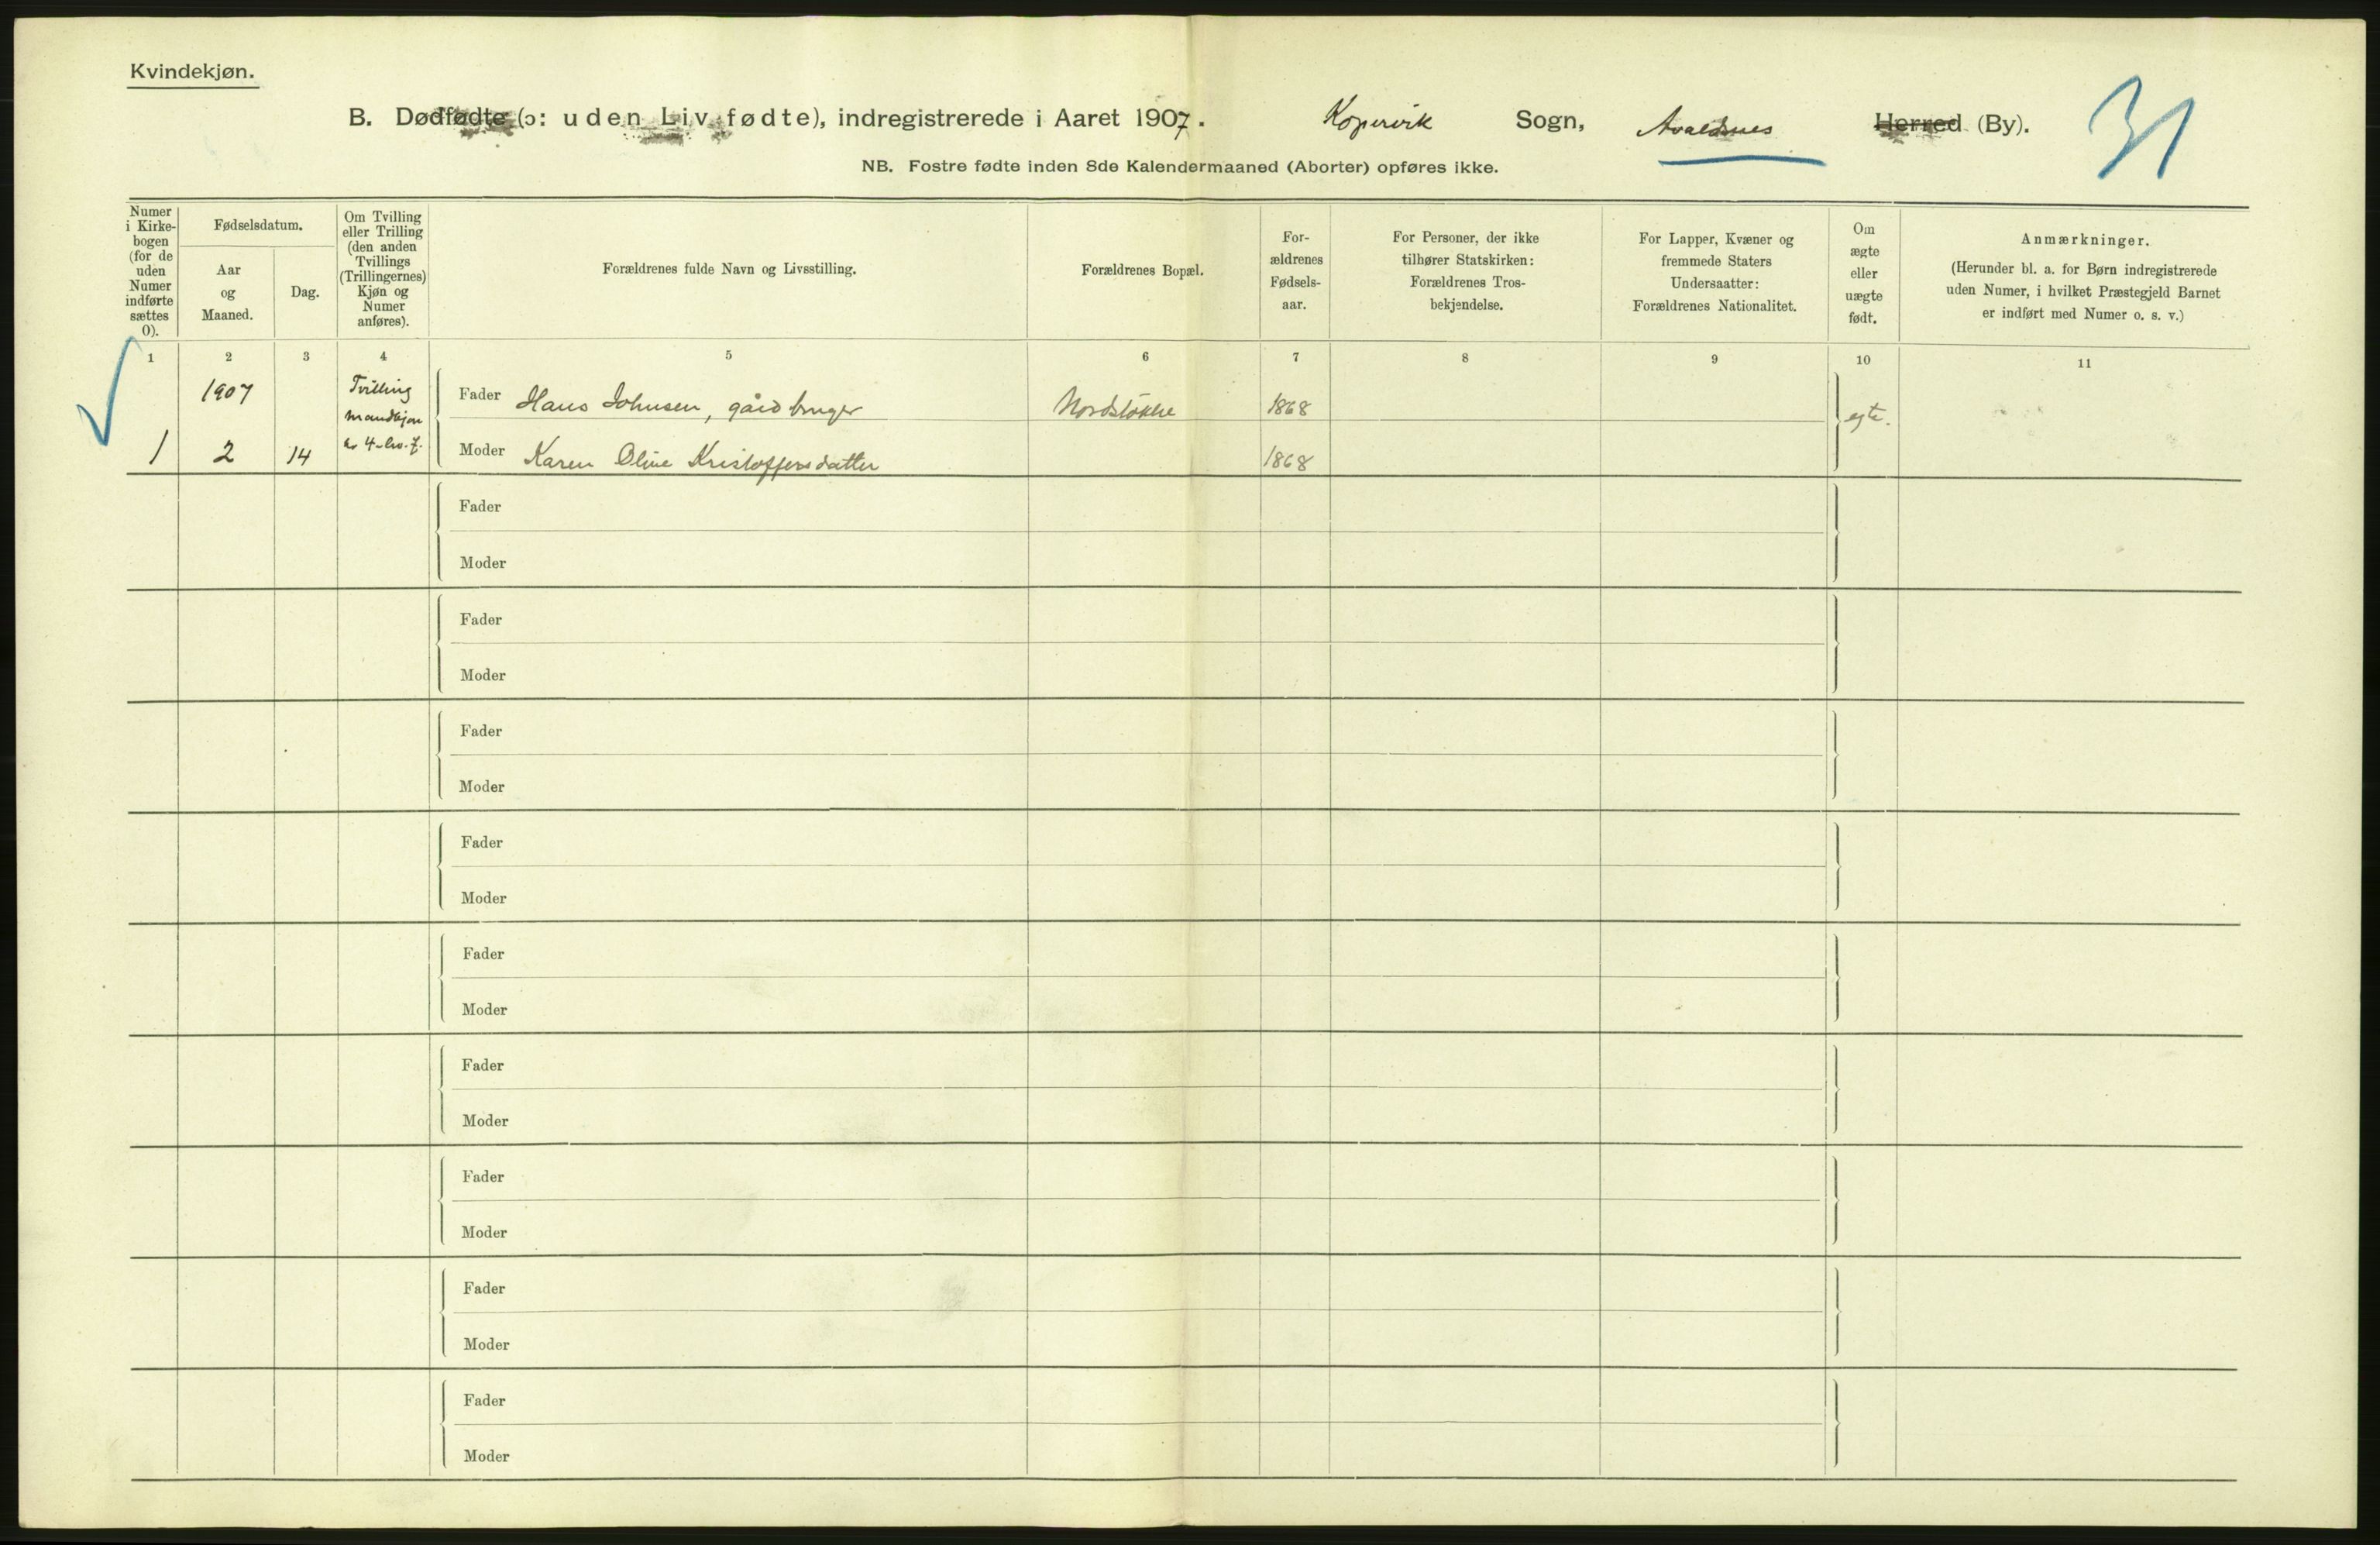 Kvindekjøn.
B. Dødfødte (ɔ: uden Liv fødte), indregistrerede i Aaret 1907. Kopervik Sogn, Avaldsnes Herred (By). 31
NB. Fostre fødte inden 8de Kalendermaaned (Aborter) opføres ikke.
Numer
i Kirke-
bogen
(for de
uden
Numer
indførte
sættes
0).
Fødselsdatum.
Aar
og
Maaned.
Dag.
Om Tvilling
eller Trilling
(den anden
Tvillings
(Trillingernes)
Kjøn og
Numer
anføres).
Forældrenes fulde Navn og Livsstilling.
Forældrenes Bopæl.
For-
ældrenes
Fødsels-
aar.
For Personer, der ikke
tilhører Statskirken:
Forældrenes Tros-
bekjendelse.
For Lapper, Kvæner og
fremmede Staters
Undersaatter:
Forældrenes Nationalitet.
Om
ægte
eller
uægte
født.
Anmærkninger.
(Herunder bl. a. for Børn indregistrerede
uden Numer, i hvilket Præstegjeld Barnet
er indført med Numer o. s. v.)
1 2 3 4 5 6 7 8 9 10 11
1907
1 2 14
Tvilling
mandkjøn
Fader Hans Johnsen, gårdbruger Nordstokke 1868 egte.
Moder Karen Oline Kristoffersdatter 1868
Fader
Moder
Fader
Moder
Fader
Moder
Fader
Moder
Fader
Moder
Fader
Moder
Fader
Moder
Fader
Moder
Fader
Moder